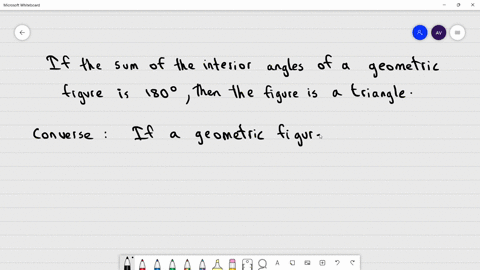 Microsoft Whiteboard
AV
If the sum of the interior angles of a geometric
figure is 180°, then the figure is a triangle.
Converse : If a geometric figur